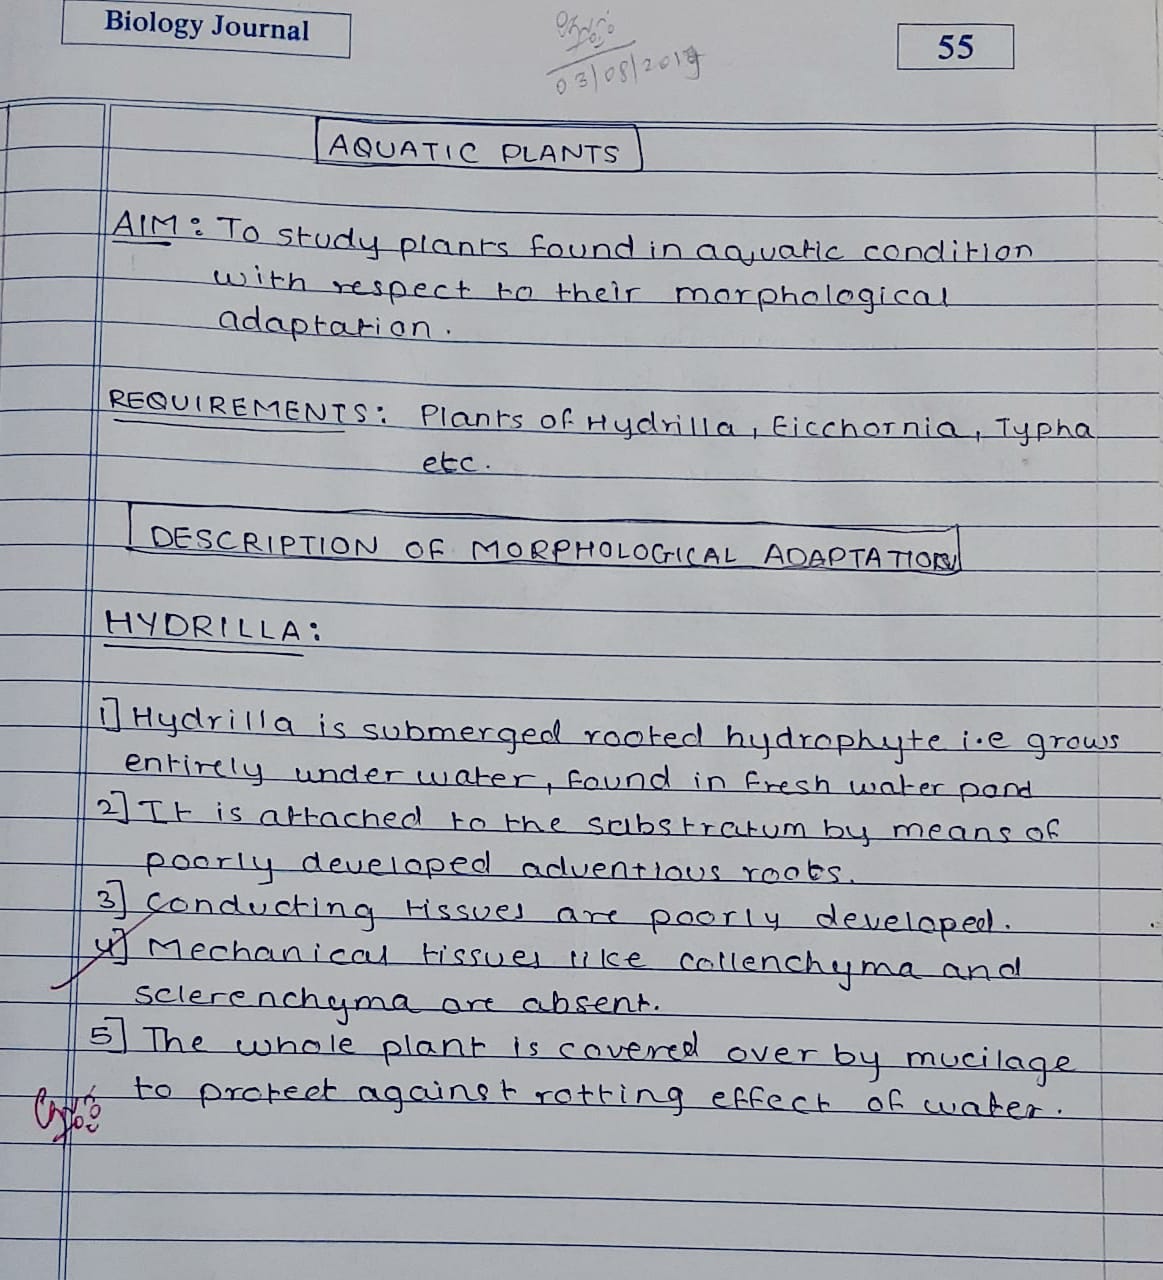 Biology Journal
03/08/2019
55
AQUATIC PLANTS
AIM: To study plants found in aquatic condition
with respect to their morphological
adaptation.
REQUIREMENTS: Plants of Hydrilla, Eicchornia, Typha
etc.
DESCRIPTION OF MORPHOLOGICAL ADAPTATION
HYDRILLA:
1] Hydrilla is submerged rooted hydrophyte i.e grows
entirely under water, found in fresh water pond
2] It is attached to the substratum by means of
poorly developed adventious roots.
3] Conducting tissues are poorly developed.
4] Mechanical tissues like collenchyma and
sclerenchyma are absent.
5] The whole plant is covered over by mucilage
to protect against rotting effect of water.